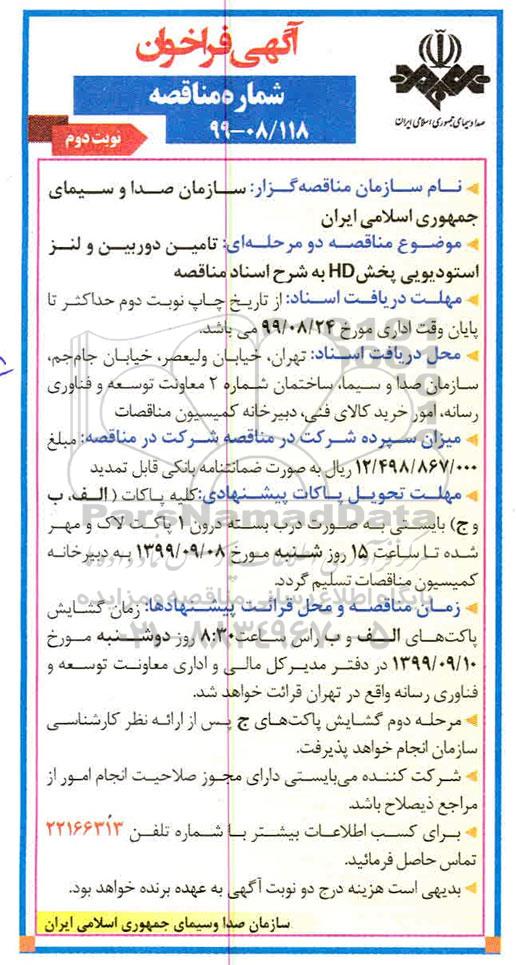 آگهی فراخوان
شماره مناقصه
۹۹-۰۸/۱۱۸
نوبت دوم
صدا و سیمای جمهوری اسلامی ایران
نام سازمان مناقصه‌گزار: سازمان صدا و سیمای
جمهوری اسلامی ایران
موضوع مناقصه دو مرحله‌ای: تامین دوربین و لنز
استودیویی پخش HD به شرح اسناد مناقصه
مهلت دریافت اسناد: از تاریخ چاپ نوبت دوم حداکثر تا
پایان وقت اداری مورخ ۹۹/۰۸/۲۴ می باشد.
محل دریافت اسناد: تهران، خیابان ولیعصر، خیابان جام‌جم،
سازمان صدا و سیما، ساختمان شماره ۲ معاونت توسعه و فناوری
رسانه، امور خرید کالای فنی، دبیرخانه کمیسیون مناقصات
میزان سپرده شرکت در مناقصه شرکت در مناقصه: مبلغ
۱۲/۴۹۸/۸۶۷/۰۰۰ ریال به صورت ضمانتنامه بانکی قابل تمدید
مهلت تحویل پاکات پیشنهادی: کلیه پاکات (الف، ب
و ج) بایستی به صورت درب بسته درون ۱ پاکت لاک و مهر
شده تا ساعت ۱۵ روز شنبه مورخ ۱۳۹۹/۰۹/۰۸ به دبیرخانه
کمیسیون مناقصات تسلیم گردد.
زمان مناقصه و محل قرائت پیشنهادها: زمان گشایش
پاکت‌های الف و ب راس ساعت ۸:۳۰ روز دوشنبه مورخ
۱۳۹۹/۰۹/۱۰ در دفتر مدیرکل مالی و اداری معاونت توسعه و
فناوری رسانه واقع در تهران قرائت خواهد شد.
مرحله دوم گشایش پاکت‌های ج پس از ارائه نظر کارشناسی
سازمان انجام خواهد پذیرفت.
شرکت کننده می‌بایستی دارای مجوز صلاحیت انجام امور از
مراجع ذیصلاح باشد.
برای کسب اطلاعات بیشتر با شماره تلفن ۲۲۱۶۶۳۱۳
تماس حاصل فرمائید.
بدیهی است هزینه درج دو نوبت آگهی به عهده برنده خواهد بود.
سازمان صدا وسیمای جمهوری اسلامی ایران
ParsNamadData
پایگاه اطلاع رسانی مناقصه و مزایده
۰۲۱-۸۸۳۴۹۶۷۰-۵